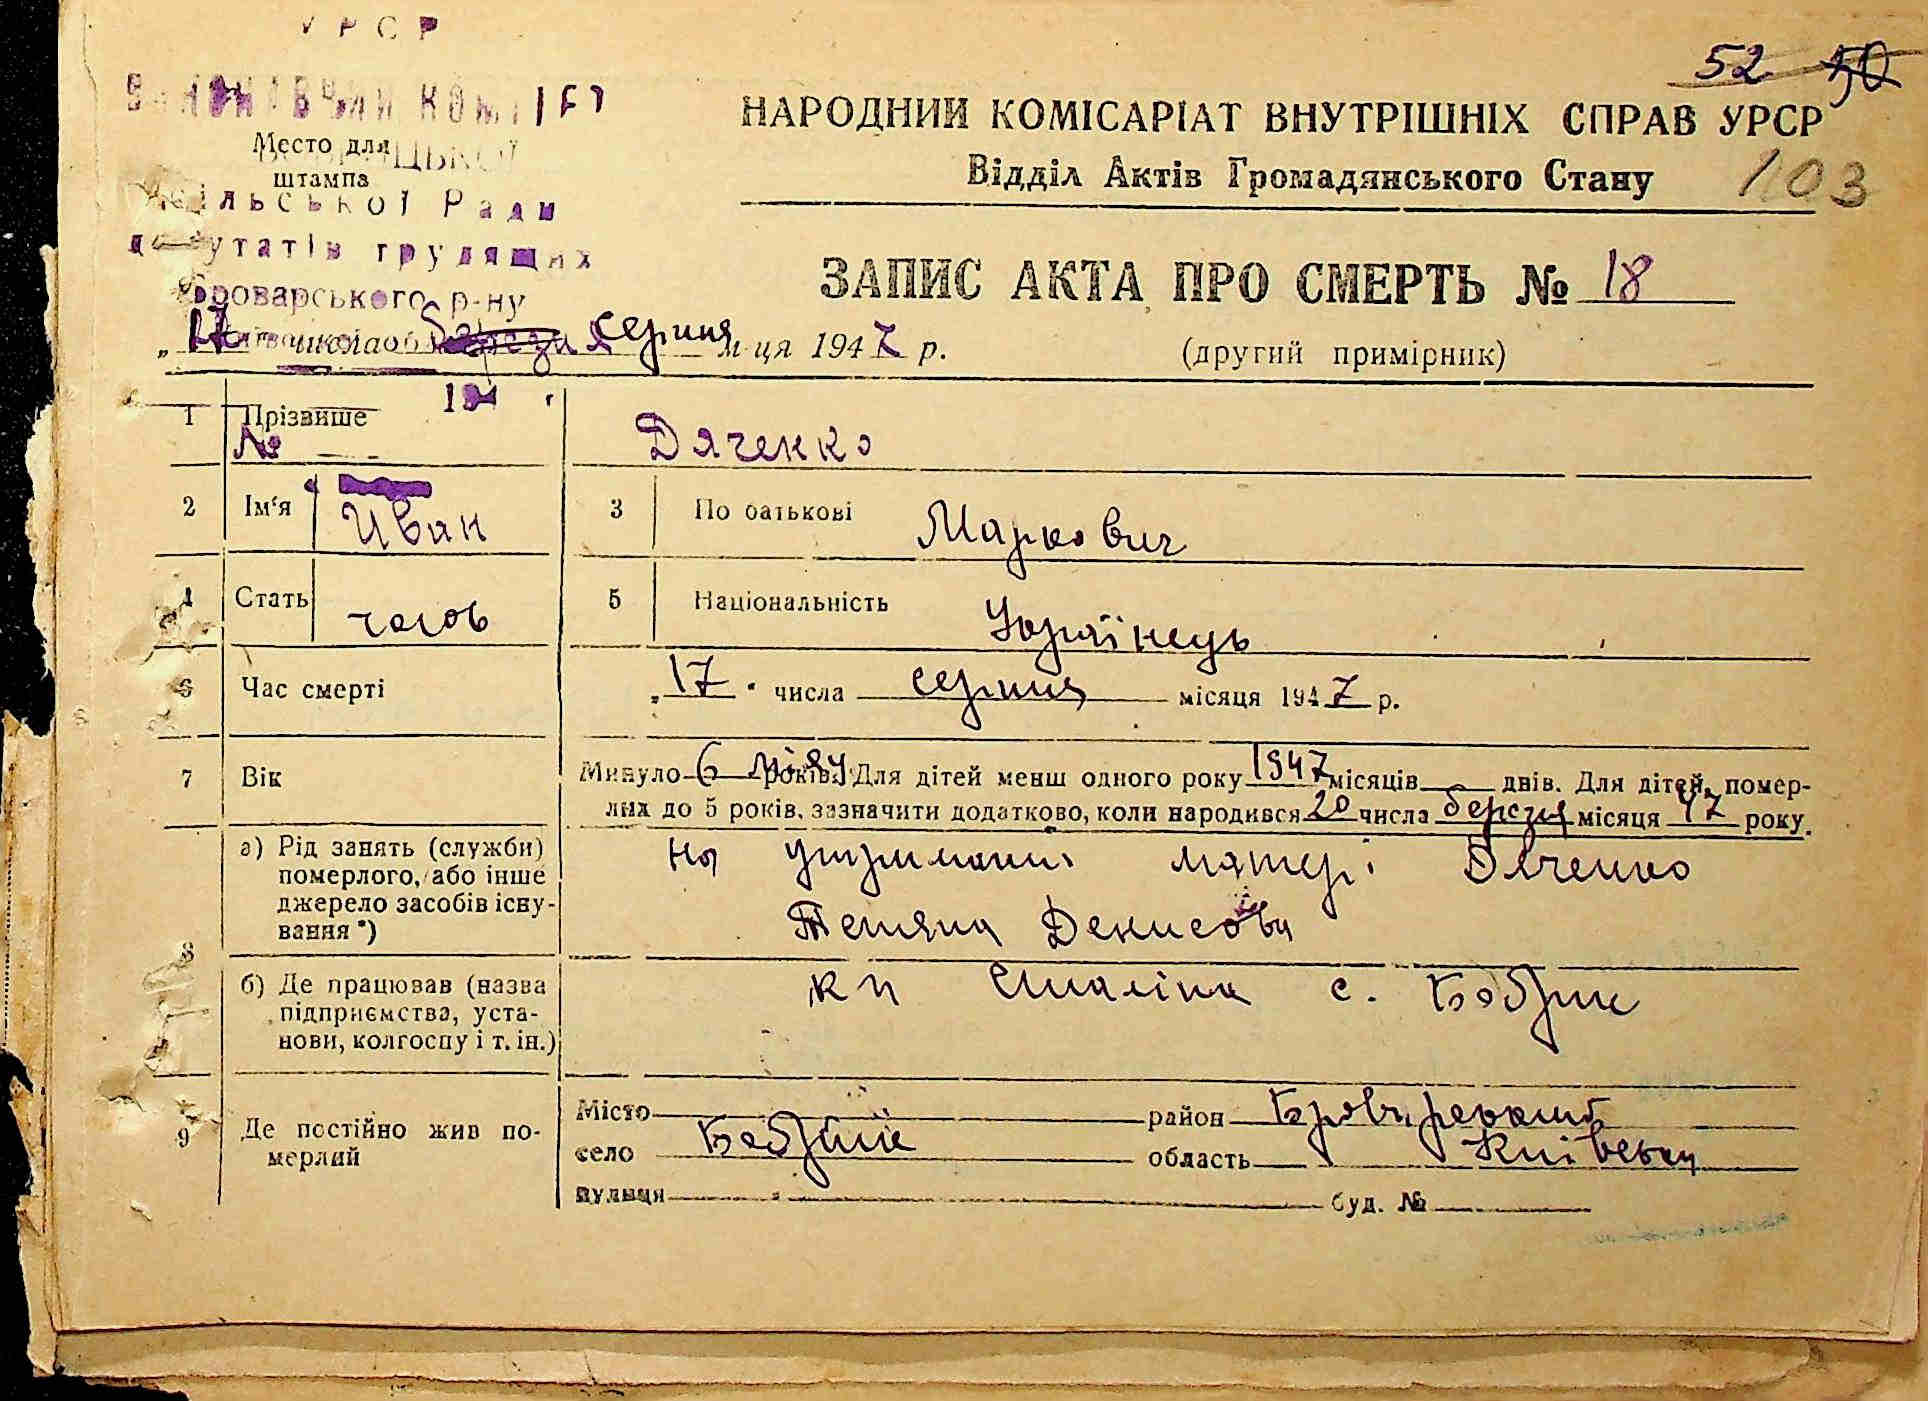 УРСР
52 50
Виконавчий комітет
НАРОДНИЙ КОМІСАРІАТ ВНУТРІШНІХ СПРАВ УРСР
Место для
штампа
Відділ Актів Громадянського Стану 103
сільської Ради
депутатів трудящих
ЗАПИС АКТА ПРО СМЕРТЬ № 18
Броварського р-ну
„17 числа серпня м-ця 1947 р.
(другий примірник)
194
1 Прізвище Дяченко
№
2 Ім'я Иван 3 По батькові Маркович
4 Стать чолов 5 Національність Українець
6 Час смерті „17" числа серпня місяця 1947 р.
7 Вік Минуло 6 місяц років. Для дітей менш одного року 1947 місяців днів. Для дітей, помер-
лих до 5 років, зазначити додатково, коли народився 20 числа березня місяця 47 року.
8 а) Рід занять (служби) померлого, або інше джерело засобів існу-вання *) на утриманні матері Дяченко
Тетяна Денисова
б) Де працював (назва підприємства, уста-нови, колгоспу і т. ін.) кп Сталіна с. Бобрик
9 Де постійно жив по-мерлий Місто район Броварський
село Бобрик область Київська
вулиця буд. №